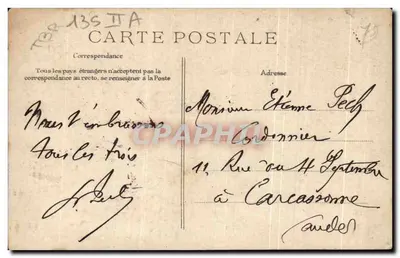 TBR 135 II A
CARTE POSTALE
Correspondance
Tous les pays étrangers n'acceptent pas la
correspondance au recto, se renseigner à la Poste
Adresse
Nous t'embrassons
tous les trois
Monsieur Etienne Pech
Cordonnier
11 Rue du 4 Septembre
à Carcassonne
(Aude)